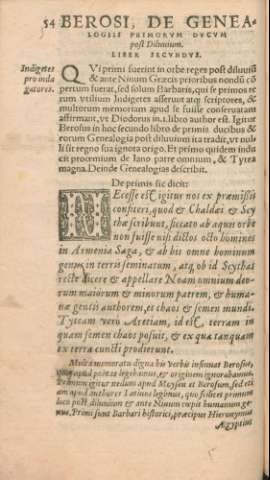 54 BEROSI, DE GENEA-
LOGIIS PRIMORVM DVCVM
post Diluuium.
LIBER SECVNDVS.
Indigetes
pro inda
gatores.
QVi primi fuerint in orbe reges post diluuiũ
& ante Ninum Græcis prioribus nondũ cõ
pertum fuerat, sed solum Barbaris, qui se primos re
rum vtilium Indigetes asserunt atq; scriptores, &
multorum memoriam apud se fuisse conseruatam
affirmant, vt Diodorus in.1. libro author est. Igitur
Berosus in hoc secundo libro de primis ducibus &
eorum Genealogia post diluuium ita tradit, vt nul-
li sit regno sua ignota origo. Et primo quidem indu
cit proemium de Iano patre omnium, & Tyrea
magna. Deinde Genealogias describit.
De primis sic dicit:
NEcesse est igitur nos ex præmissis
confiteri, quod & Chaldæi & Scy
thæ scribunt, siccato ab aquis orbe
non fuisse nisi dictos octo homines
in Armenia Saga, & ab his omne hominum
genus in terris seminatum, atq; ob id Scythas
recte dicere & appellare Noam omnium deo-
rum maiorum & minorum patrem, & huma-
næ gentis authorem, et chaos & semen mundi.
Tyteam verò Aretiam, id est, terram in
quam semen chaos posuit, & ex qua tanquam
ex terra cuncti prodierunt.
Multa memoratu digna his verbis insinuat Berosus,
quæ apud poetas legebamus, & originem ignorabamus.
Primum igitur nedum apud Moysen et Berosum, sed eti
am apud authores Latinos legimus, quo scilicet primum
loco post diluuium & ante Ninum cœpit humanum ge-
nus. Primi sunt Barbari historici, præcipue Hieronymus
Ægyptius